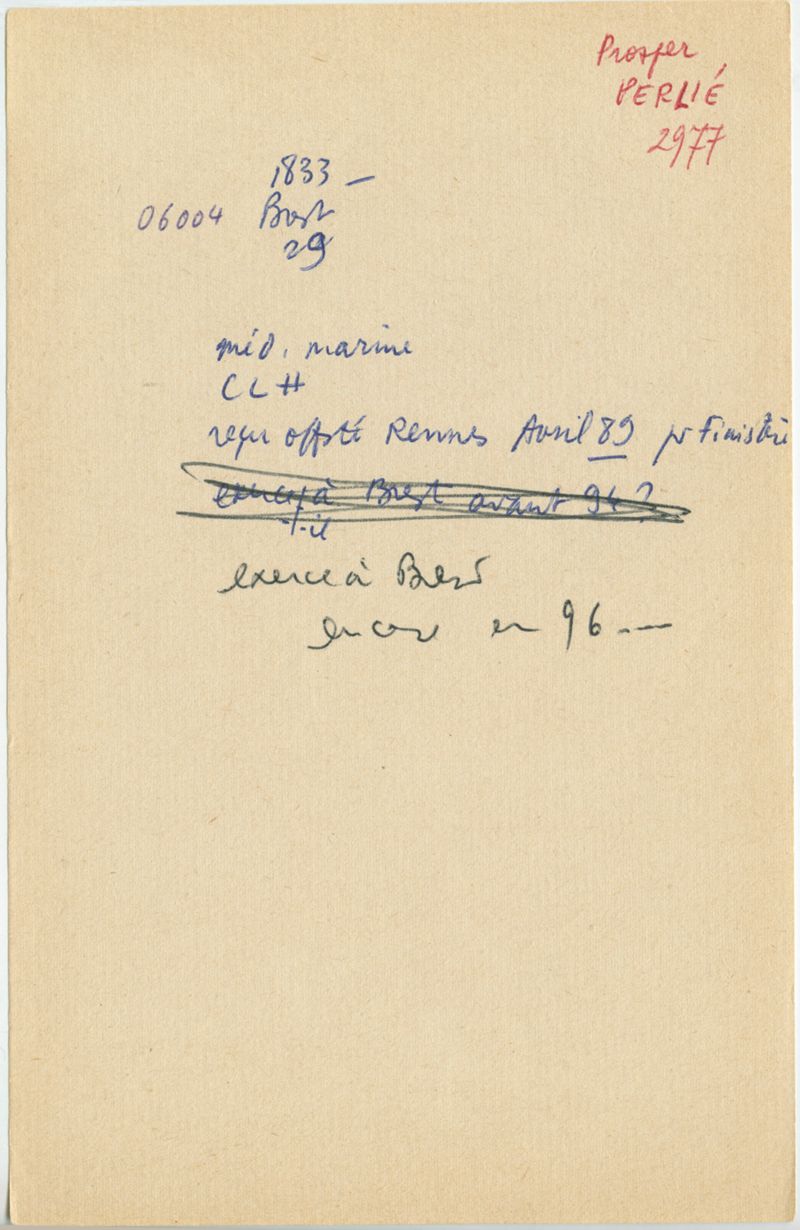 Prosper
PERLIÉ
2977
1833 –
06004 Brest
29
méd. marine
CLH
reçu offsté Rennes Avril 89 pr Finistère
exerce à Brest avant 94?
-t-il
exerce à Brest
encore en 96 ---